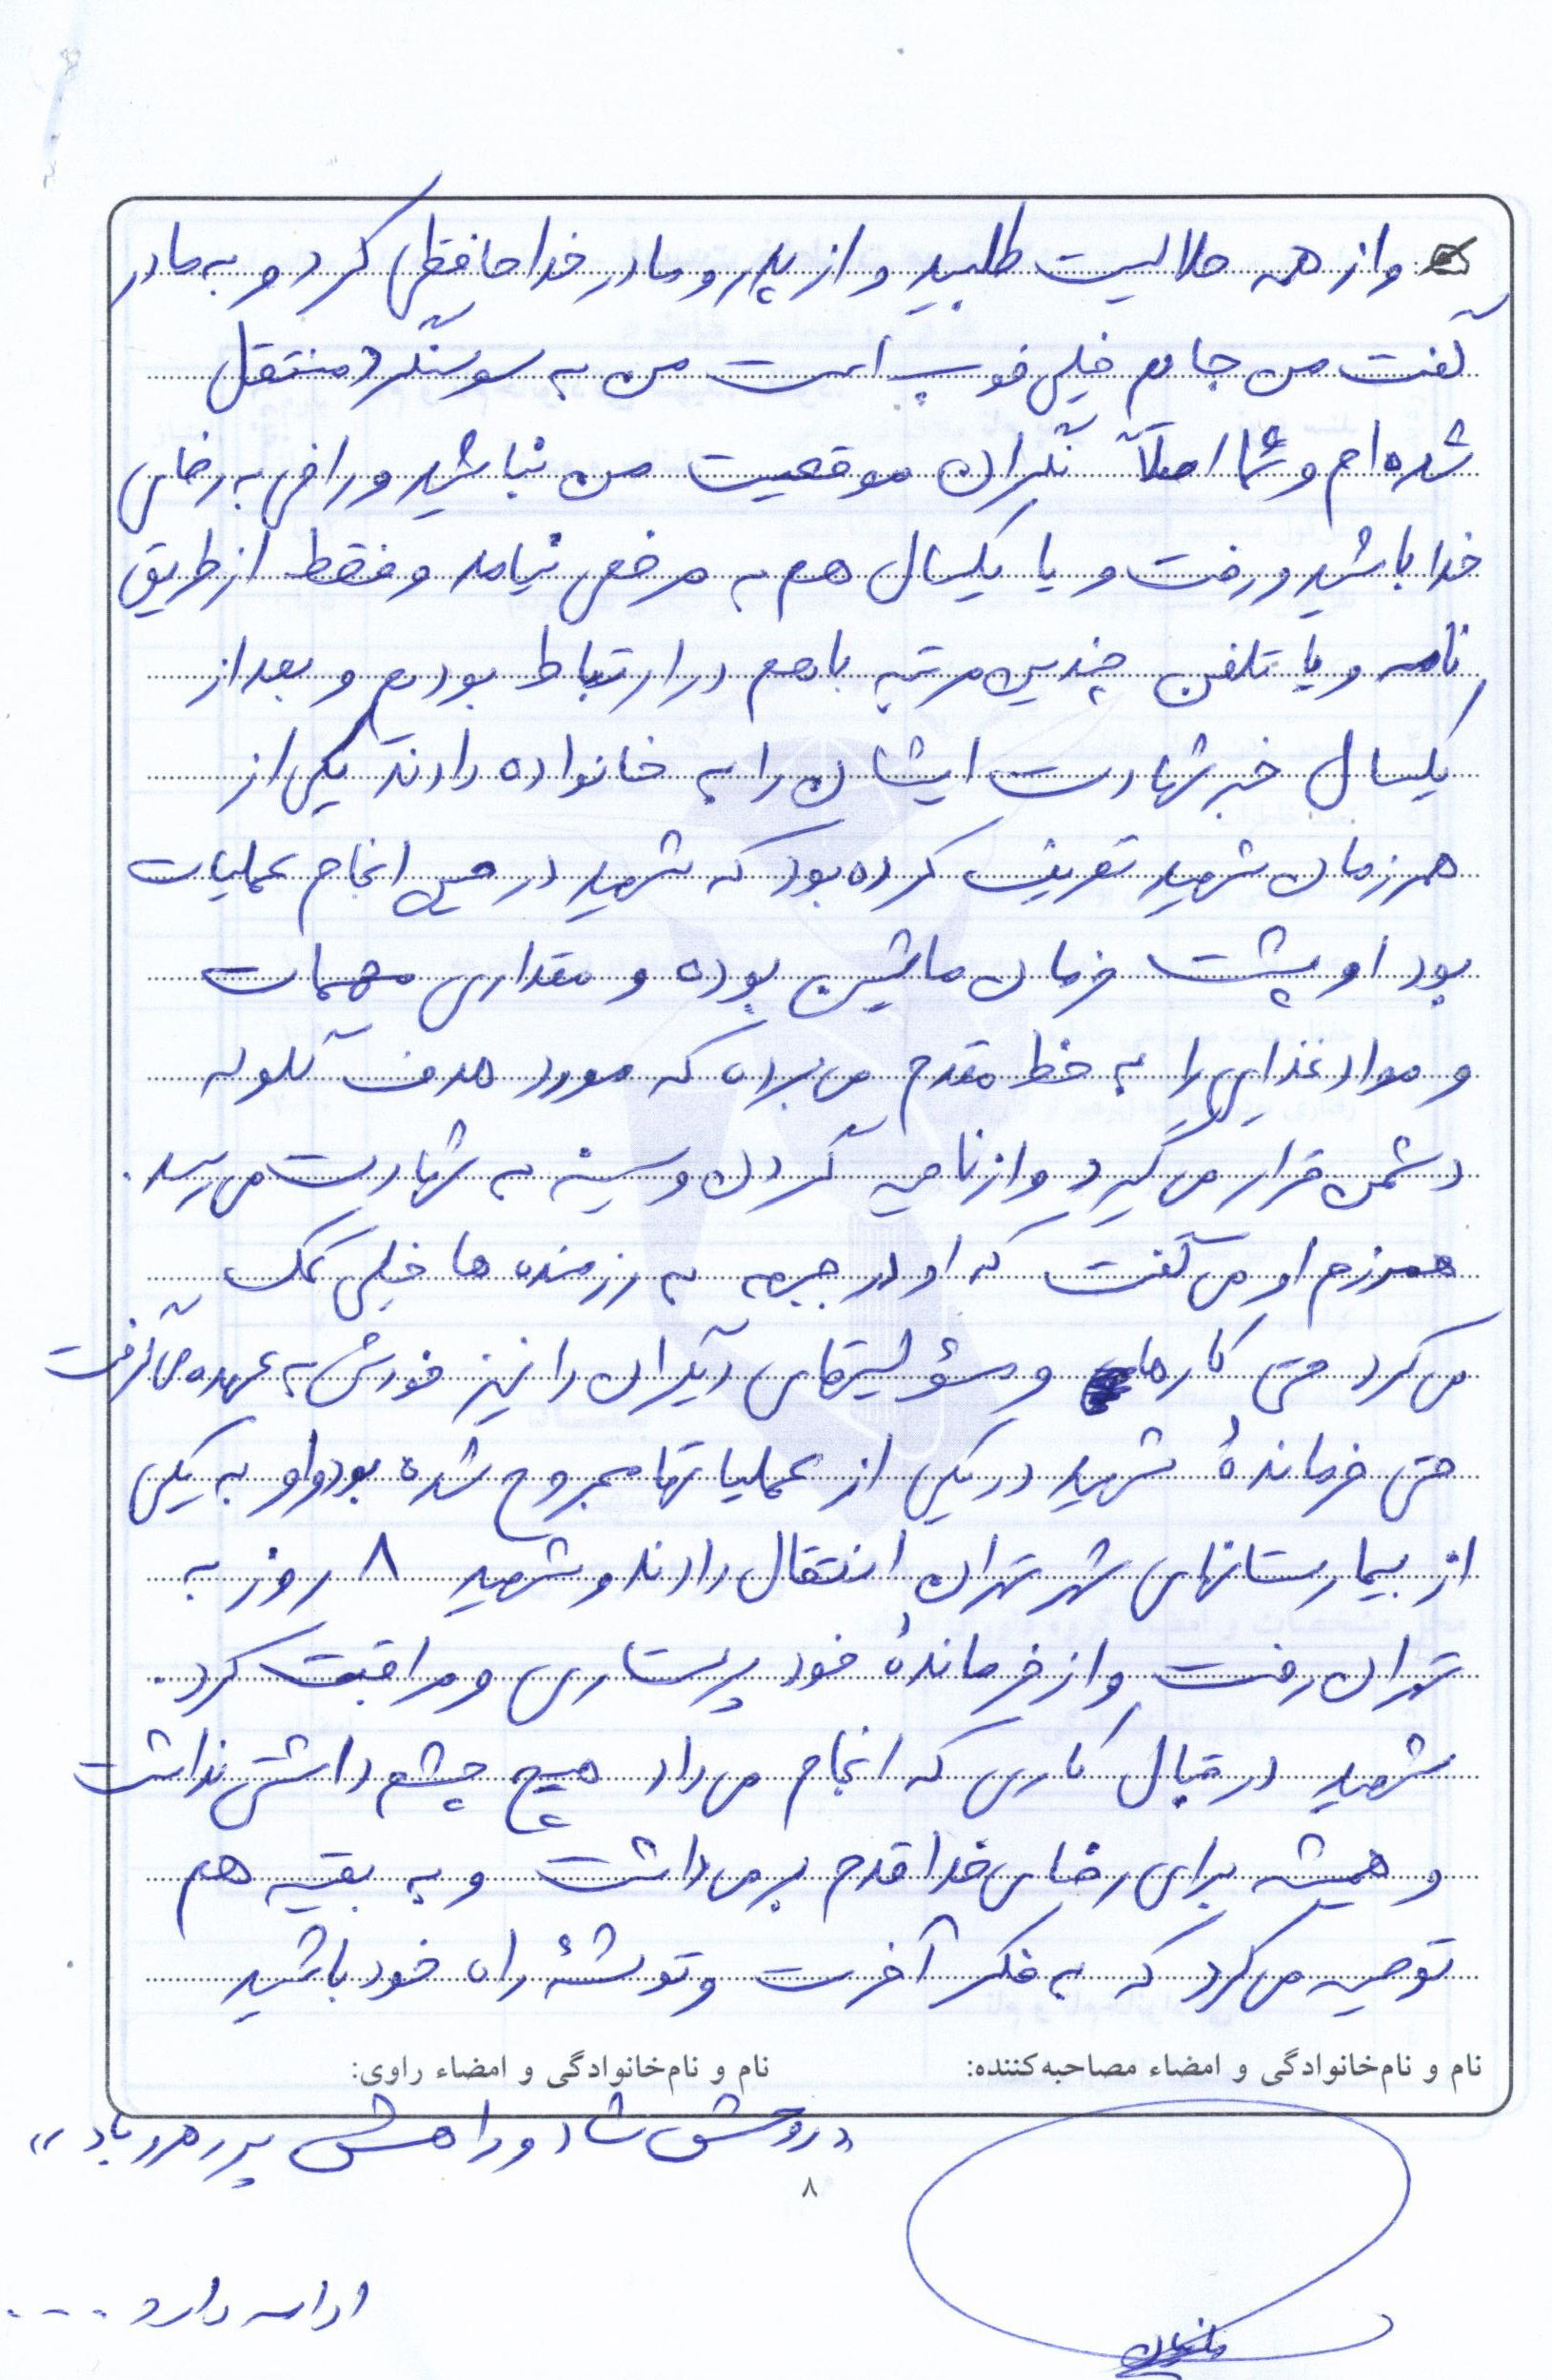 و از همه حلالیت طلبید و از پدر و مادر خداحافظی کرد و به مادر
گفت من جایم خیلی خوب است من به سوسنگرد منتقل
شده ام و شما اصلاً نگران موقعیت من نباشید و راضی به رضای
خدا باشید و رفت و یا یکسال هم به مرخصی نیامد و فقط از طریق
نامه و یا تلفن چندین مرتبه با هم در ارتباط بودیم و بعد از
یکسال خبر شهادت ایشان را به خانواده دادند یکی از
همرزمان شهید تعریف کرده بود که شهید در حین انجام عملیات
بود او پشت فرمان ماشین بوده و مقداری مهمات
و مواد غذایی را به خط مقدم می برده که مورد هدف گلوله
دشمن قرار می گیرد و از ناحیه گردن و سینه به شهادت می رسد.
همرزم او می گفت که او در جبهه به رزمنده ها خیلی کمک
می کرد حتی کارهای و مسؤلیتهای دیگران را نیز خودش به عهده می گرفت
حتی فرماندهٔ شهید در یکی از عملیاتها مجروح شده بود و او به یکی
از بیمارستانهای شهر تهران انتقال دادند و شهید ۸ روز به
تهران رفت و از فرماندهٔ خود پرستاری و مراقبت کرد.
شهید در قبال کاری که انجام می داد هیچ چشم داشتی نداشت
و همیشه برای رضای خدا قدم بر می داشت و به بقیه هم
توصیه می کرد که به فکر آخرت و توشهٔ راه خود باشید
نام و نام‌خانوادگی و امضاء مصاحبه‌کننده: نام و نام‌خانوادگی و امضاء راوی:
«روحش شاد و راهش پر رهرو باد»
۸
ادامه دارد ....